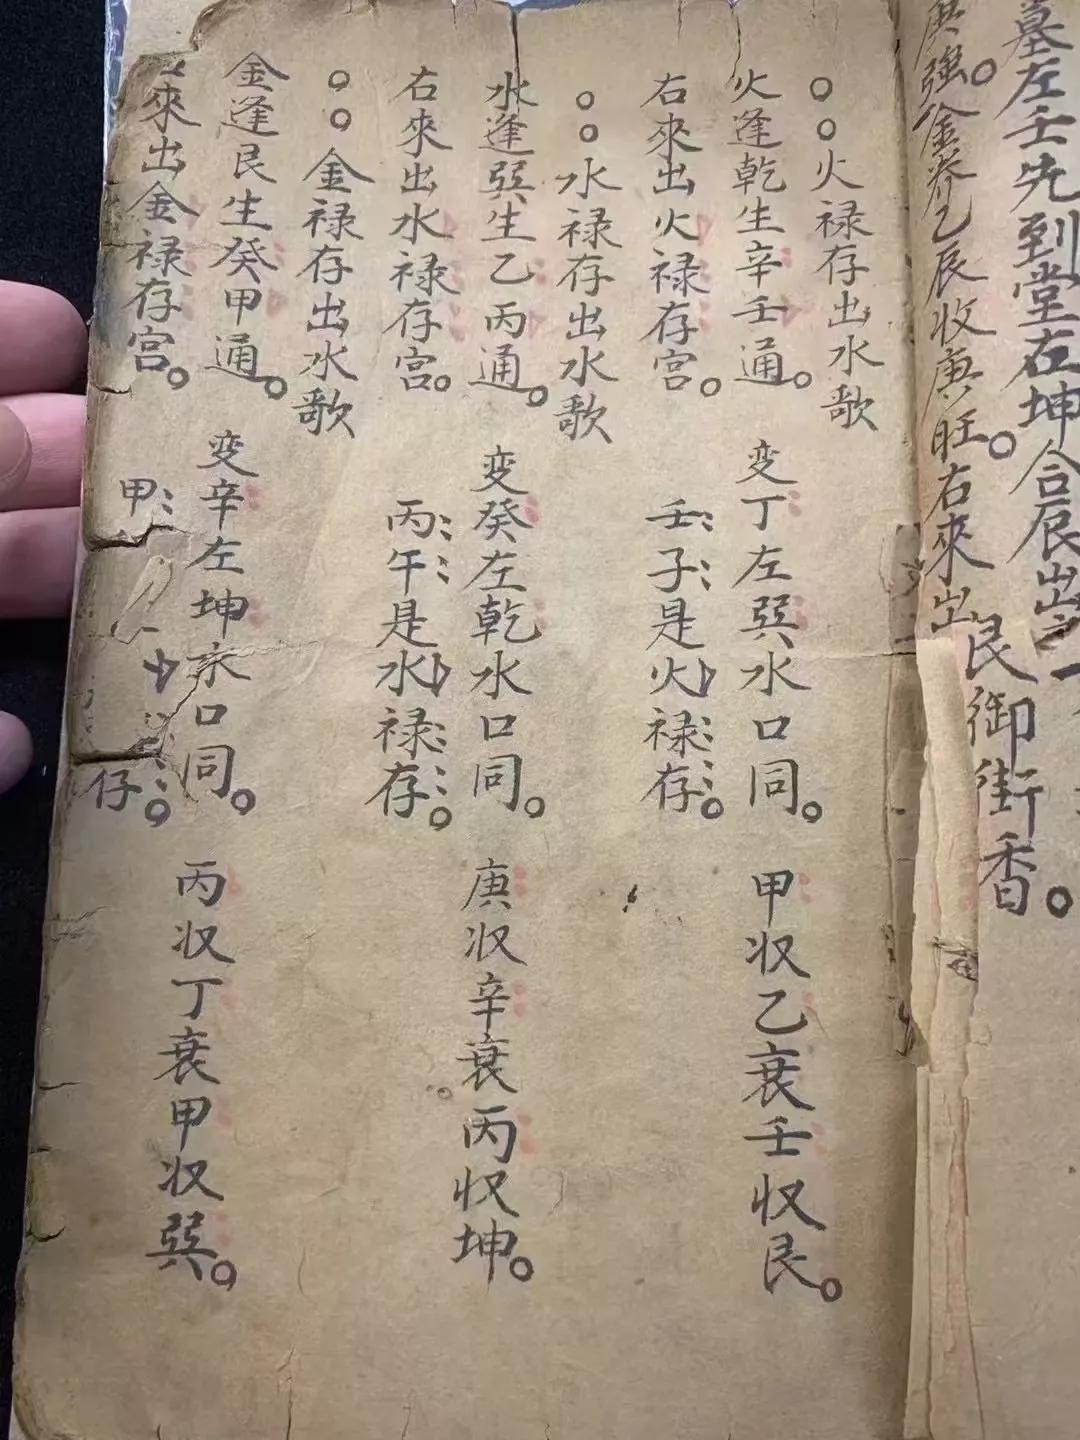 墓左壬先到堂左坤合辰出
庚強。金養乙辰收庚旺。右來出艮御街香。
○○火禄存出水歌
火逢乾生辛壬通。变丁左巽水口同。甲収乙衰壬収艮。
右來出火禄存宮。壬子是火禄存。
○○水禄存出水歌
水逢巽生乙丙通。变癸左乾水口同。庚収辛衰丙収坤。
右來出水禄存宮。丙午是水禄存。
○○金禄存出水歌
金逢艮生癸甲通。变辛左坤水口同。丙収丁衰甲収巽。
來出金禄存宮。甲存。